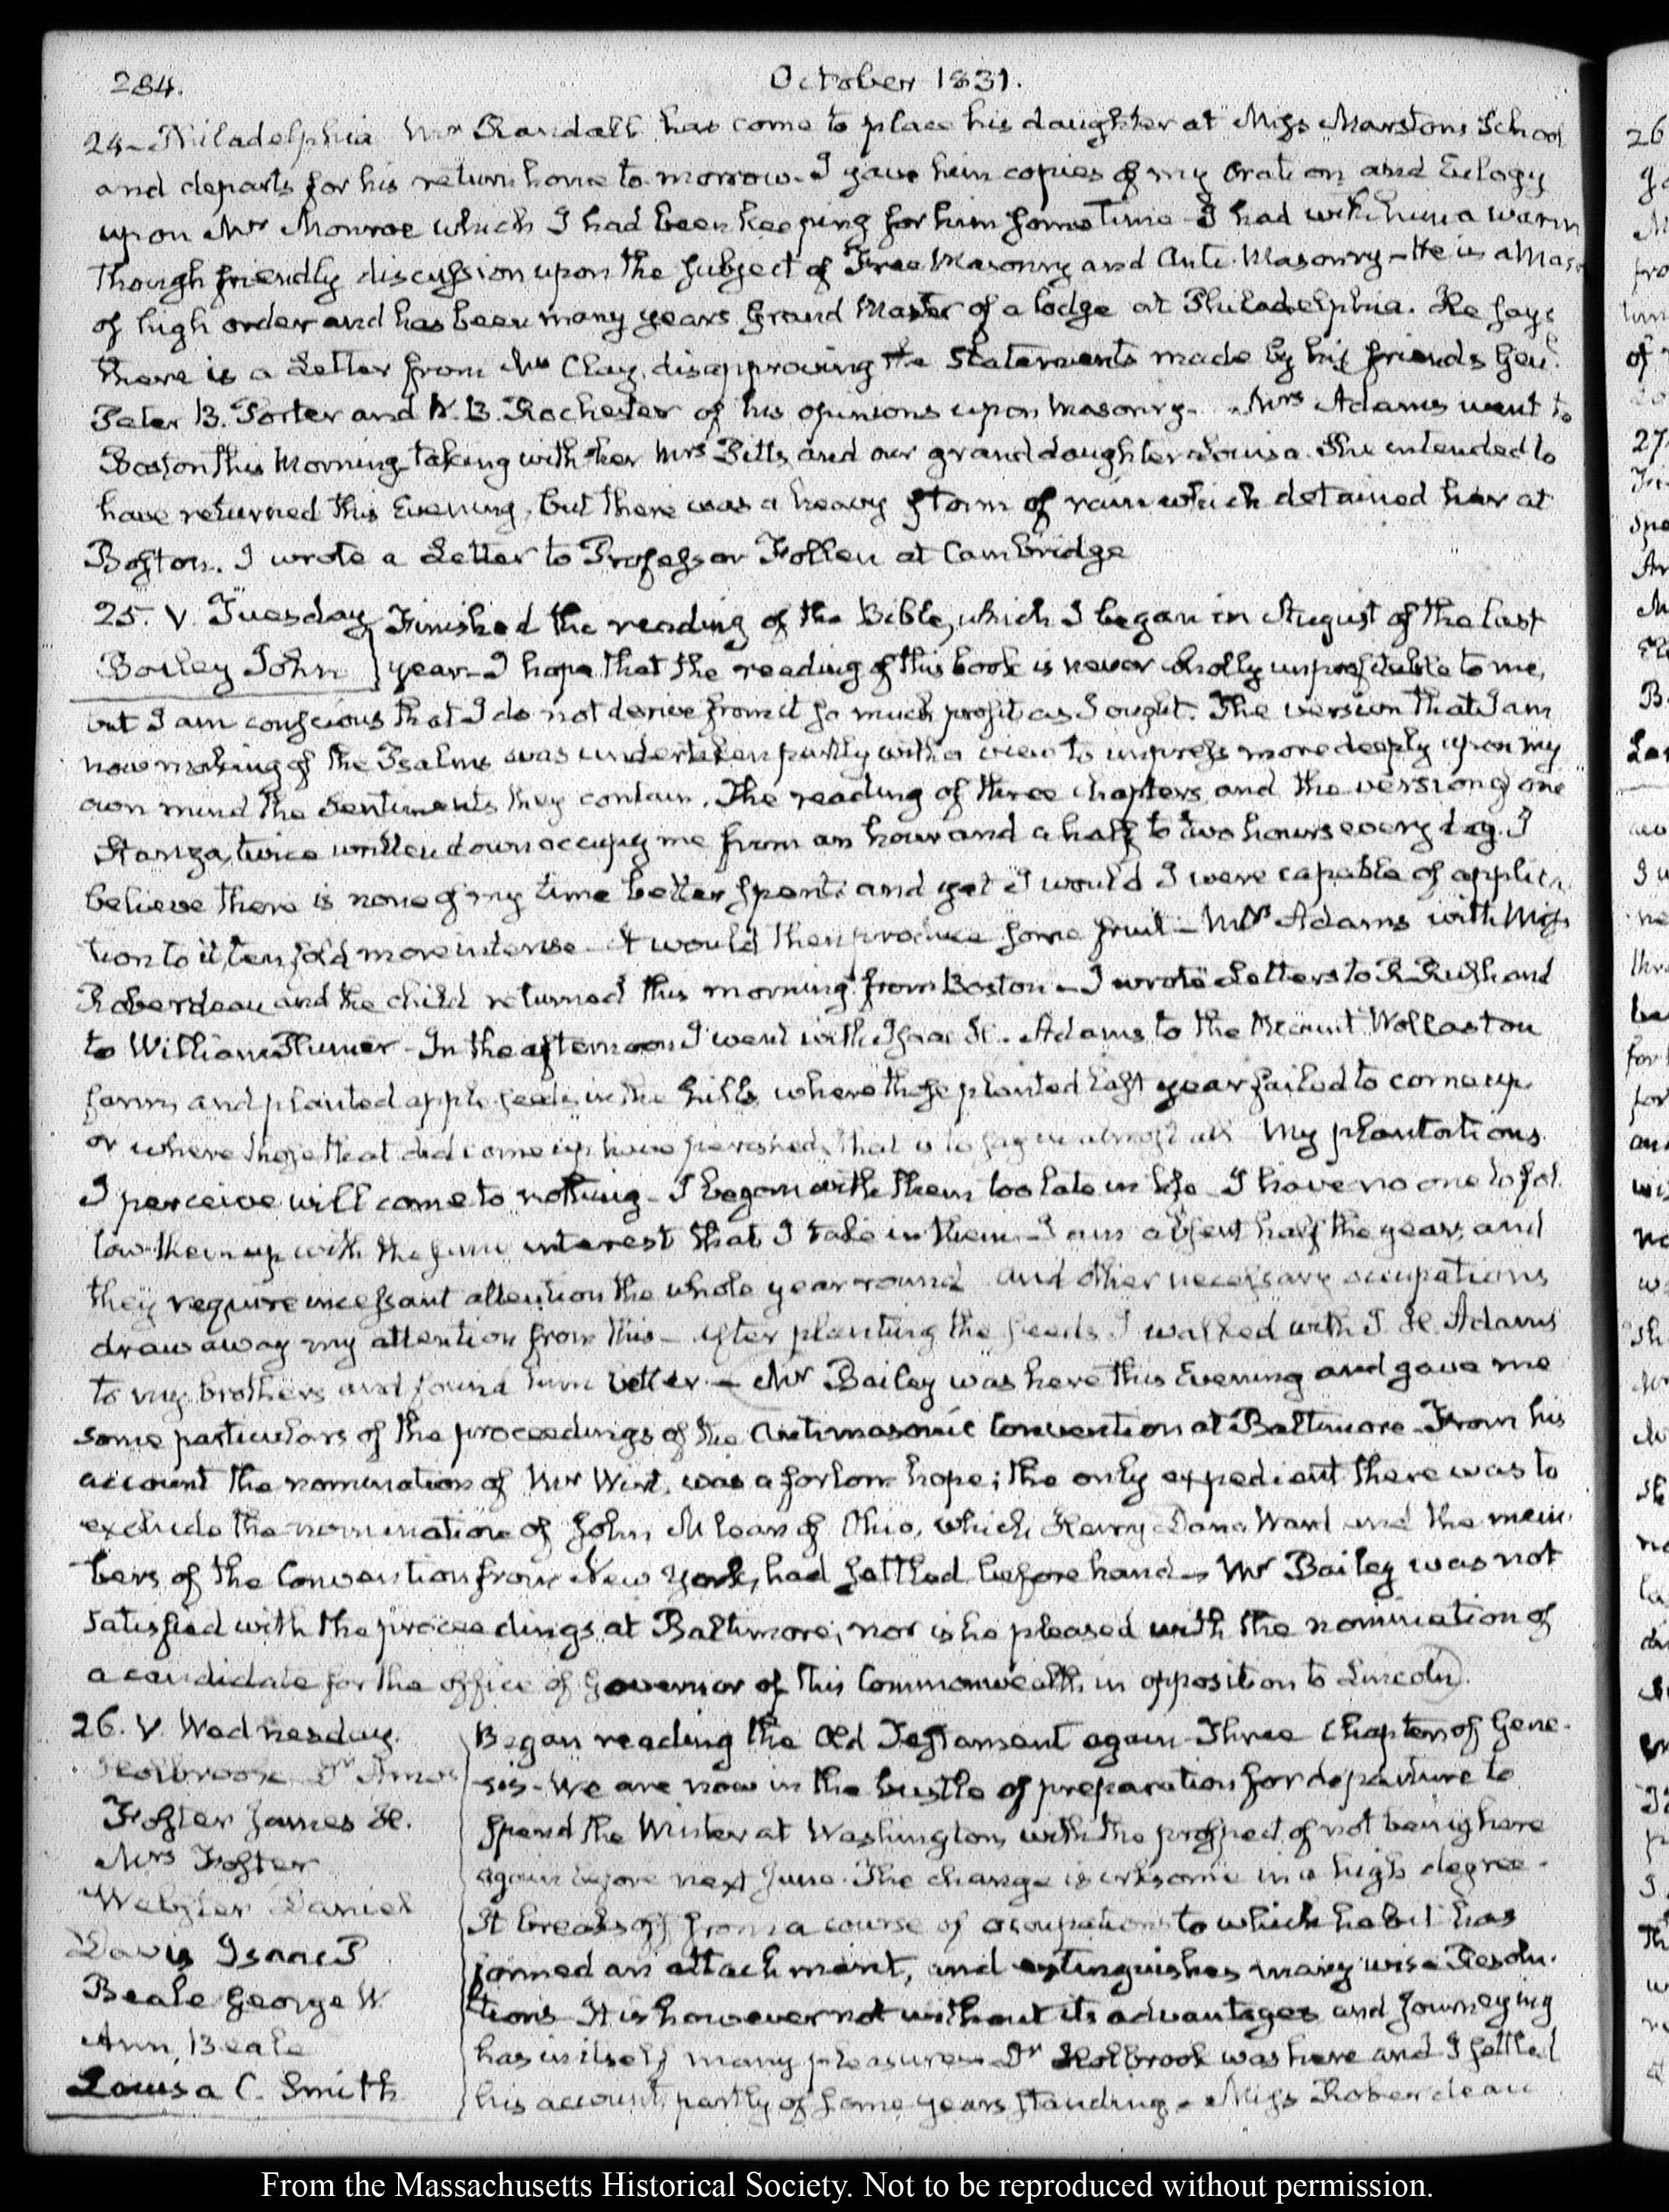 284.
October 1831.
24 - Philadelphia Mr Randall has come to place his daughter at Miss Marstons School
and departs for his return home to-morrow. I gave him copies of my Oration and Eulogy
upon Mr Monroe which I had been keeping for him some time - I had with him a warm
though friendly discussion upon the subject of Free Masonry and Anti-Masonry - He is a Mason
of high order and has been many years Grand Master of a lodge at Philadelphia. He says
there is a Letter from Mr Clay, disapproving the Statements made by his friends Genl.
Peter B. Porter and W. B. Rochester of his opinions upon Masonry. Mrs Adams went to
Boston this Morning taking with her Mrs Pitts and our granddaughter Louisa. She intended to
have returned this Evening, but there was a heavy storm of rain which detained her at
Boston. I wrote a Letter to Professor Follen at Cambridge
25. V. Tuesday
Bailey John
Finished the reading of the Bible, which I began in August of the last
year - I hope that the reading of this book is never wholly unprofitable to me,
but I am conscious that I do not derive from it so much profit as I ought. The version that I am
now making of the Psalms was undertaken partly with a view to impress more deeply upon my
own mind the Sentiments they contain. The reading of three Chapters and the version of one
Stanza, twice written down occupy me from an hour and a half to two hours every day. I
believe there is none of my time better spent: and yet I would I were capable of applica-
tion to it, ten fold more intense - It would then produce some fruit - Mrs Adams with Miss
Roberdeau and the child returned this morning from Boston - I wrote Letters to R Rush and
to William Plumer - In the afternoon I went with Isaac H. Adams to the Mount Wollaston
farm, and planted apple seeds in the hills where those planted last year failed to come up
or where those that did come up have perished, that is to say in almost all - My plantations
I perceive will come to nothing - I began with them too late in life - I have no one to fol-
low them up with the same interest that I take in them - I am absent half the year, and
they require incessant attention the whole year round and other necessary occupations
draw away my attention from this - After planting the seeds I walked with I. H. Adams
to my brothers and found him better - Mr Bailey was here this Evening and gave me
some particulars of the proceedings of the Antimasonic Convention at Baltimore - From his
account the nomination of Mr Wirt, was a forlorn hope; the only expedient there was to
exclude the nomination of John McLean of Ohio, which Henry Dana Ward and the mem-
bers of the Convention from New York, had settled before hand - Mr Bailey was not
satisfied with the proceedings at Baltimore; nor is he pleased with the nomination of
a candidate for the office of Governor of this Commonwealth in opposition to Lincoln.
26. V. Wednesday.
Holbrook Dr Amos
Foster James H.
Mrs Foster
Webster Daniel
Davis Isaac P
Beale George W.
Ann Beale
Louisa C. Smith
Began reading the Old Testament again - Three Chapters of Gene-
sis - We are now in the bustle of preparation for departure to
spend the Winter at Washington, with the prospect of not being here
again before next June. The change is irksome in a high degree -
It breaks off from a course of occupations to which habit has
formed an attachment, and extinguishes many wise Resolu-
tions - It is however not without its advantages and journeying
has in itself many pleasures - Dr Holbrook was here and I settled
his account, partly of some years standing - Miss Roberdeau
From the Massachusetts Historical Society. Not to be reproduced without permission.